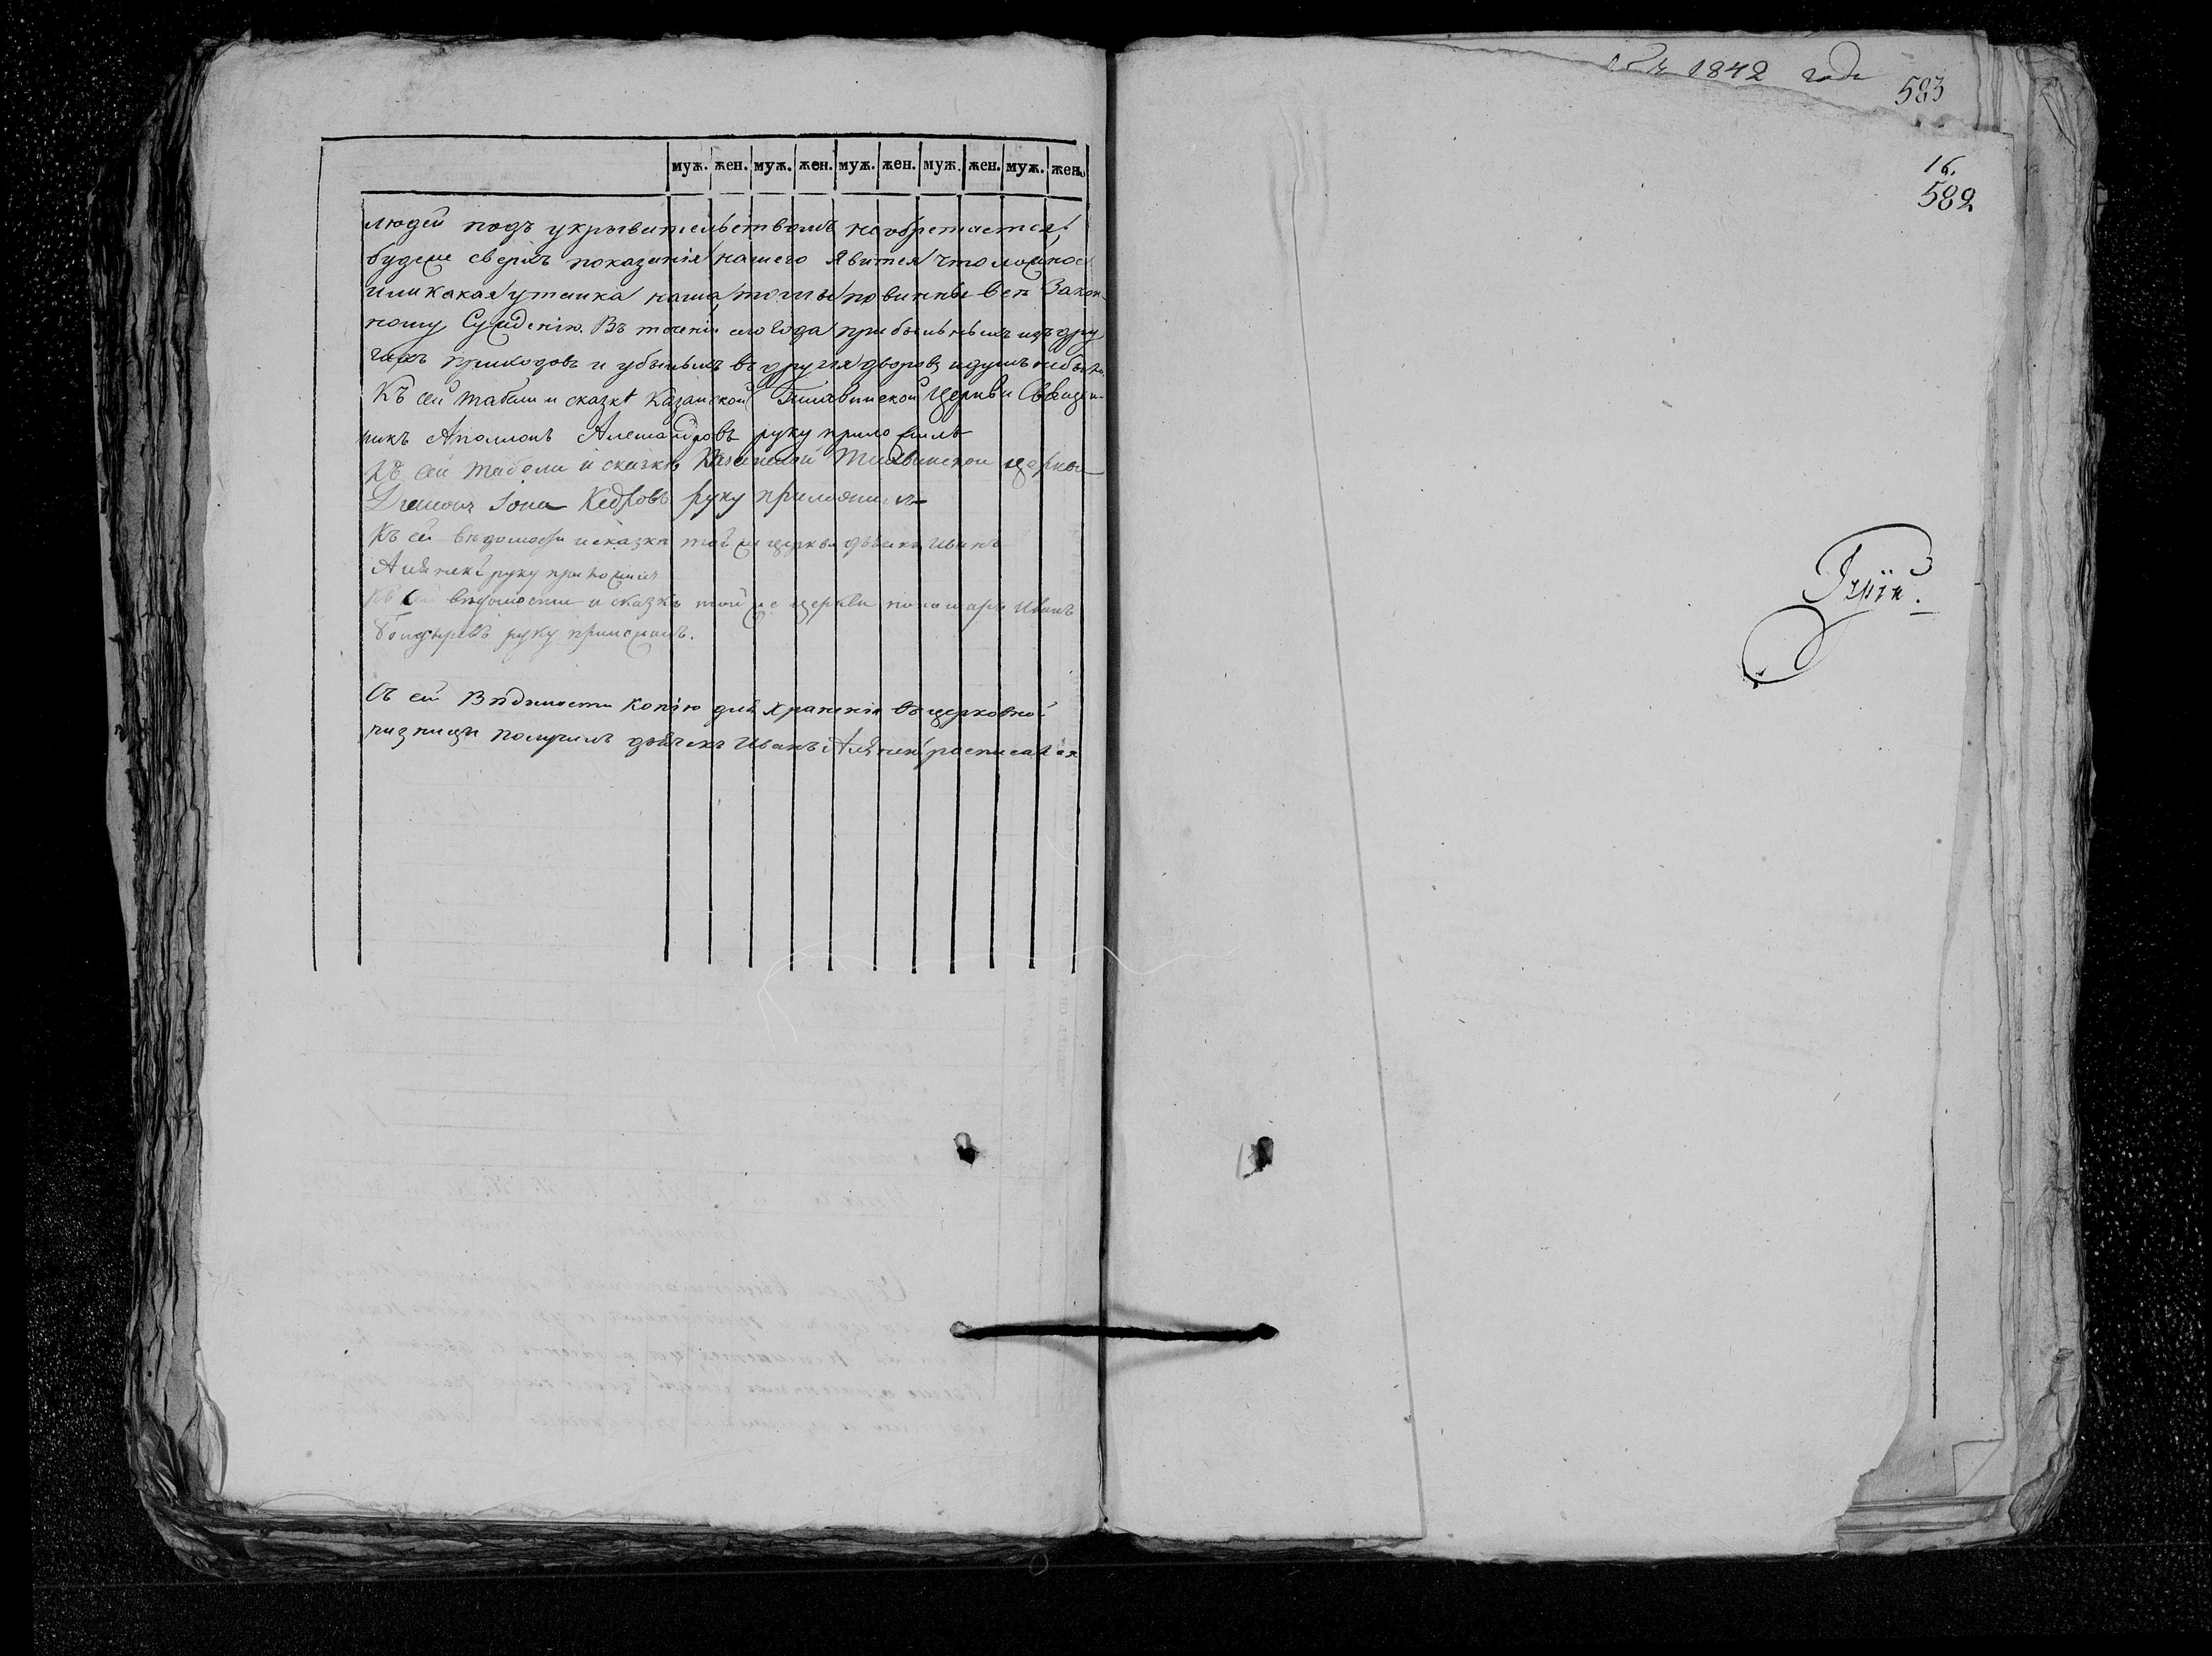 муж. жен. муж. жен. муж. жен. муж. жен. муж. жен.
людей подъ укрывительствомъ необретается,
будеже сверхъ показанія нашего явится что ложное
или какая утайка наша, то мы повинны всѣ Закон-
ному Сужденію. Въ теченіи сего года прибывшихъ изъ дру
гихъ приходовъ и убывшихъ въ другія дворовъ и душъ небыло.
Къ сей табели и сказкѣ Казанской Тихвинской Церкви Священ-
никъ Аполлонъ Александровъ руку приложилъ
Къ сей табели и сказкѣ Казанской Тихвинской церкви
Діаконъ Іона Кедровъ руку приложилъ
Къ сей вѣдомости и сказкѣ той же церкви дьячекъ Иванъ
руку приложилъ
Къ сей вѣдомости и сказкѣ той же церкви пономарь Иванъ
руку приложилъ.
Съ сей Вѣдомости копію для храненія въ церковной
ризницы получилъ дьячекъ Иванъ росписался
1842 года
583
16.
582